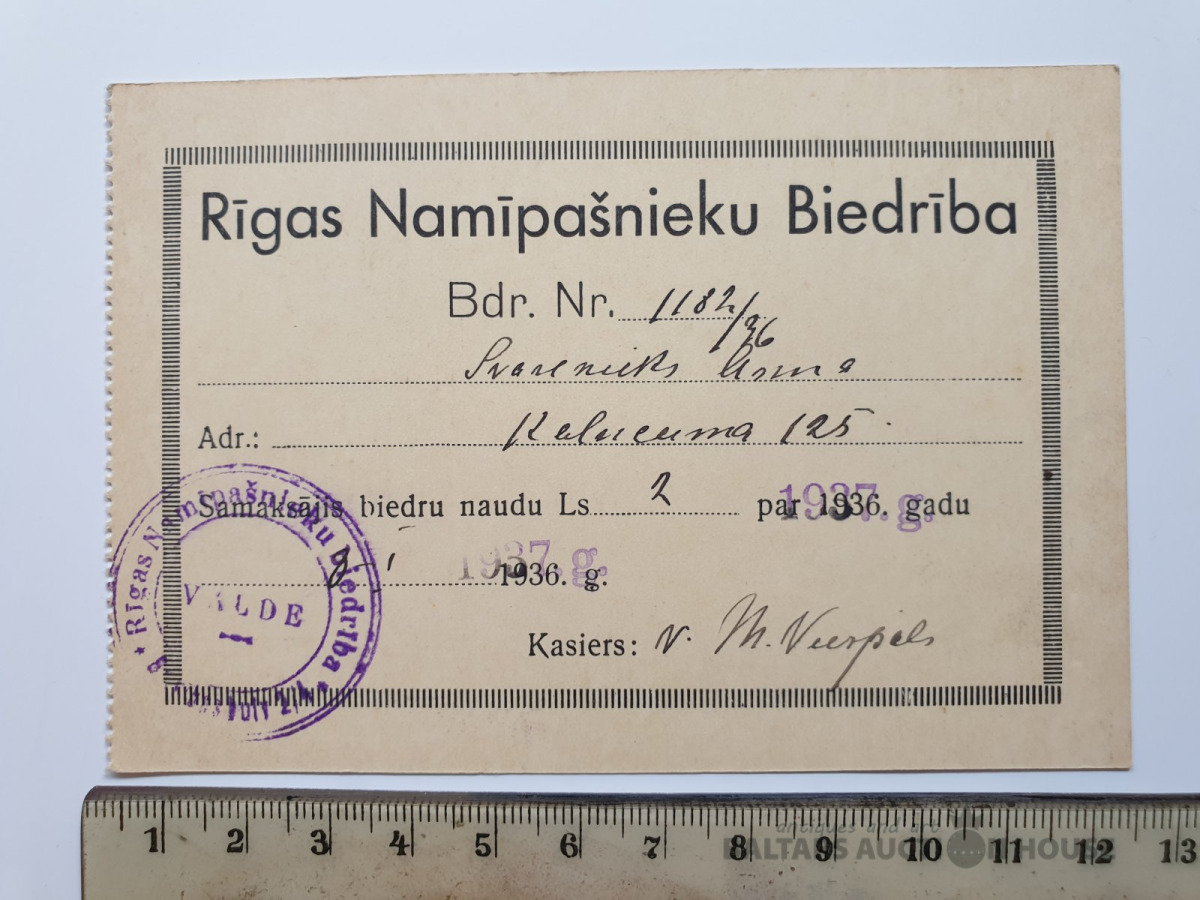 Rīgas Namīpašnieku Biedrība
Bdr. Nr. 1182/36
Anna
Adr.: Kalncema 125
Samaksājis biedru naudu Ls 2 par 1936. gadu
1937. g.
1937. g.
1936. g.
Kasiers: v. M.
★ Rīgas Namīpašnieku biedrība ★
VALDE
1 2 3 4 5 6 7 8 9 10 11 12 13
antiques and art
BALTARS AUCTION HOUSE